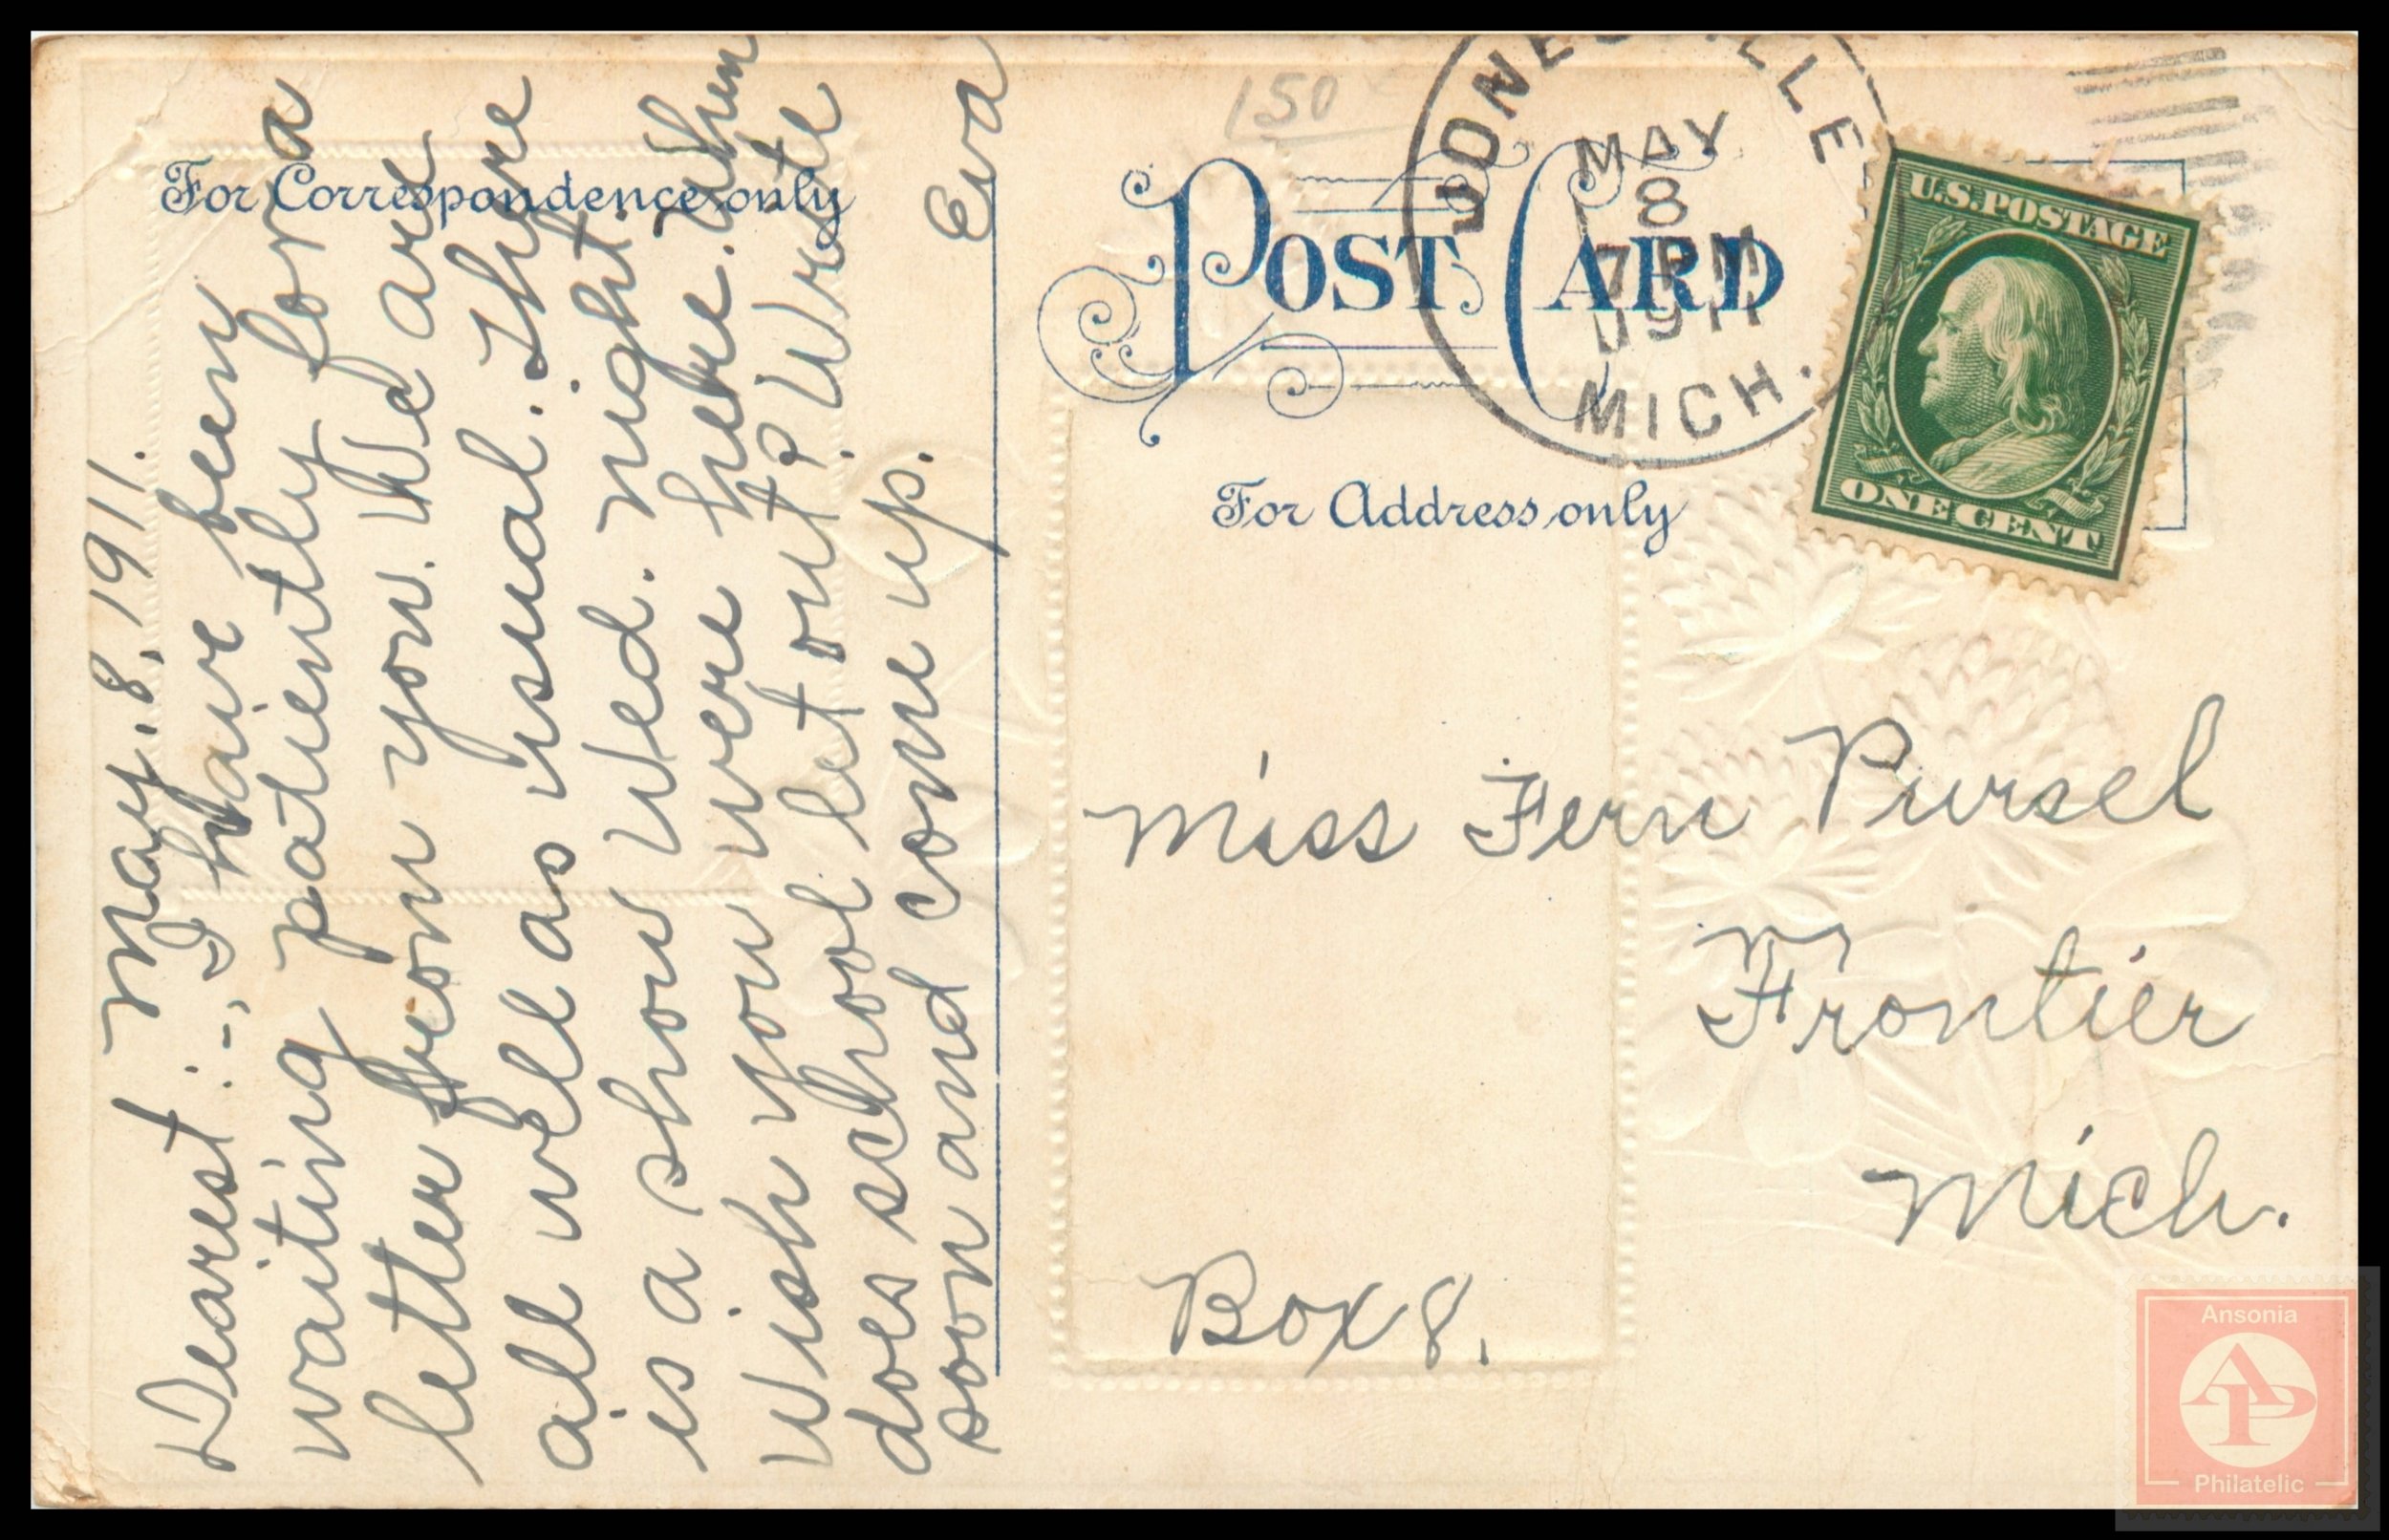 For Correspondence only
May. 8, 1911.
Dearest :-, I have been
waiting patiently for a
letter from you. We are
all well as usual. There
is a show Wed. night.
Wish you were here. When
does school let out? Write
soon and come up.
Eva
150
POST CARD
JONES ILLE
MAY
8
7 PM
1911
MICH.
U.S. POSTAGE
ONE CENT
For Address only
Miss Fern Pursel
Frontier
Mich.
Box 8.
Ansonia
AP
Philatelic